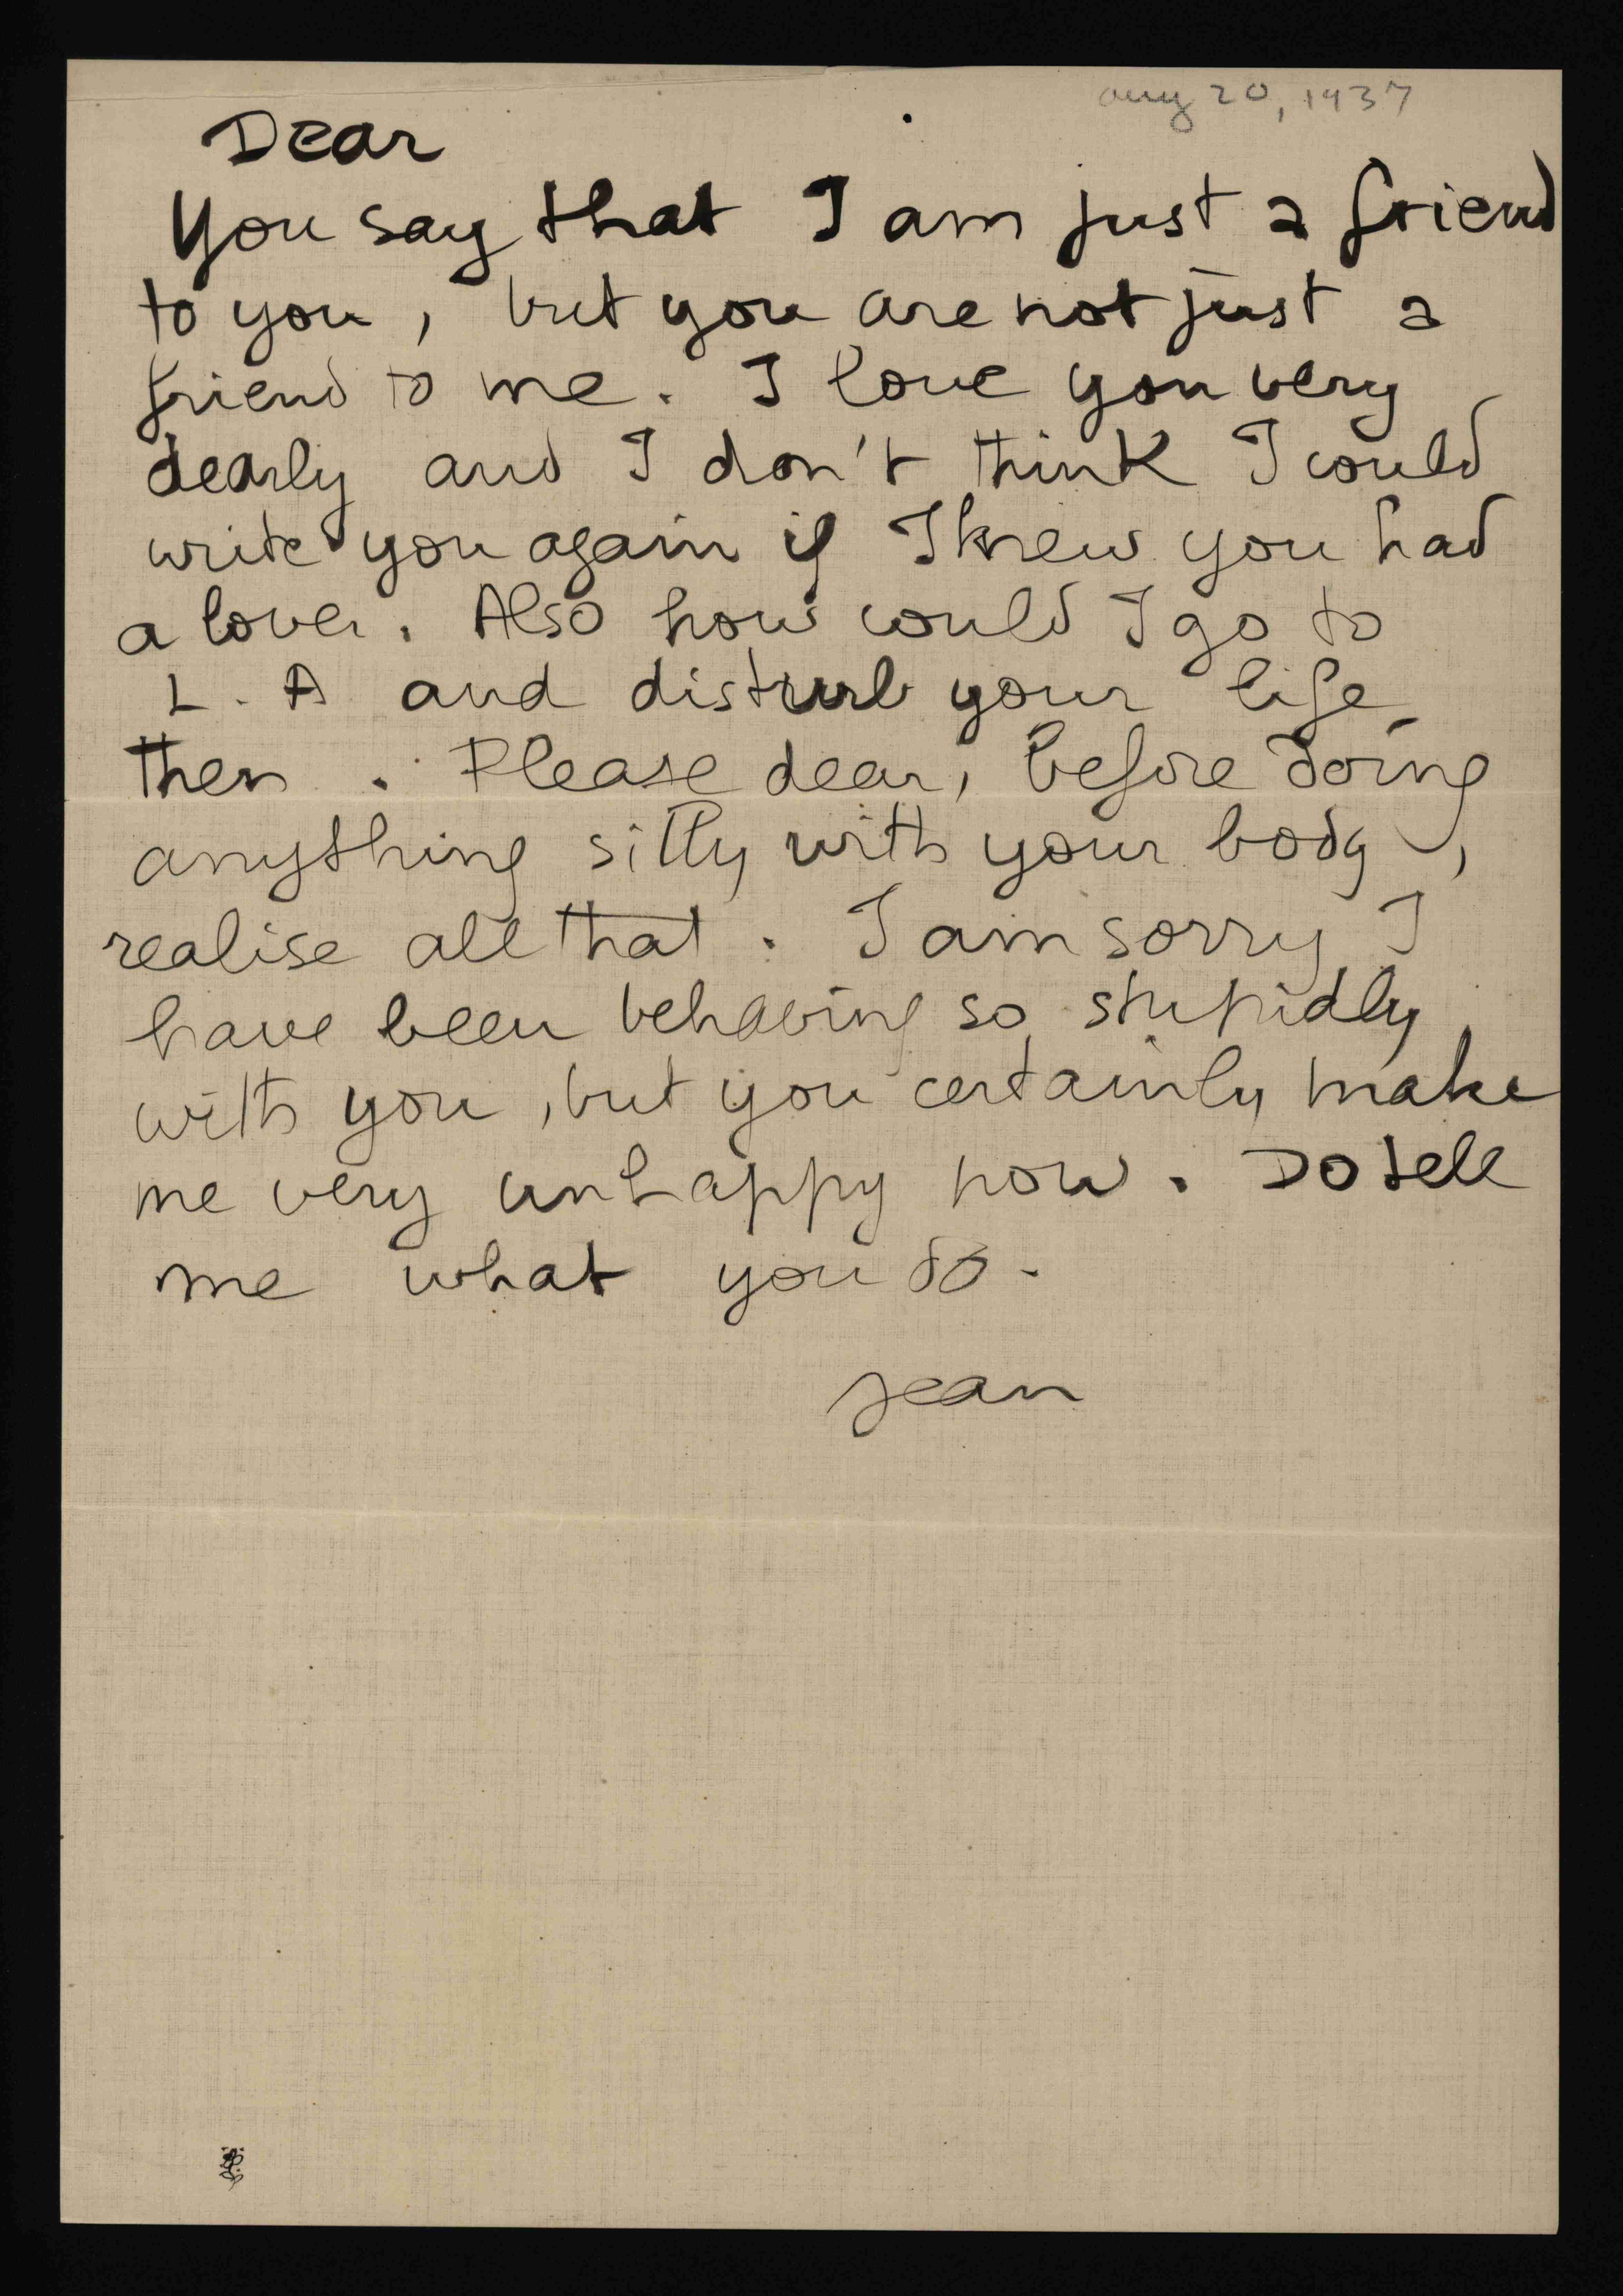 aug 20, 1937
Dear
You say that I am just a friend
to you, but you are not just a
friend to me. I love you very
dearly and I don't think I could
write you again if I knew you had
a lover. Also how could I go to
L. A and disturb your life
then. Please dear, before doing
anything silly with your body,
realise all that. I am sorry I
have been behaving so stupidly
with you, but you certainly make
me very unhappy now. Do tell
me what you do.
Jean